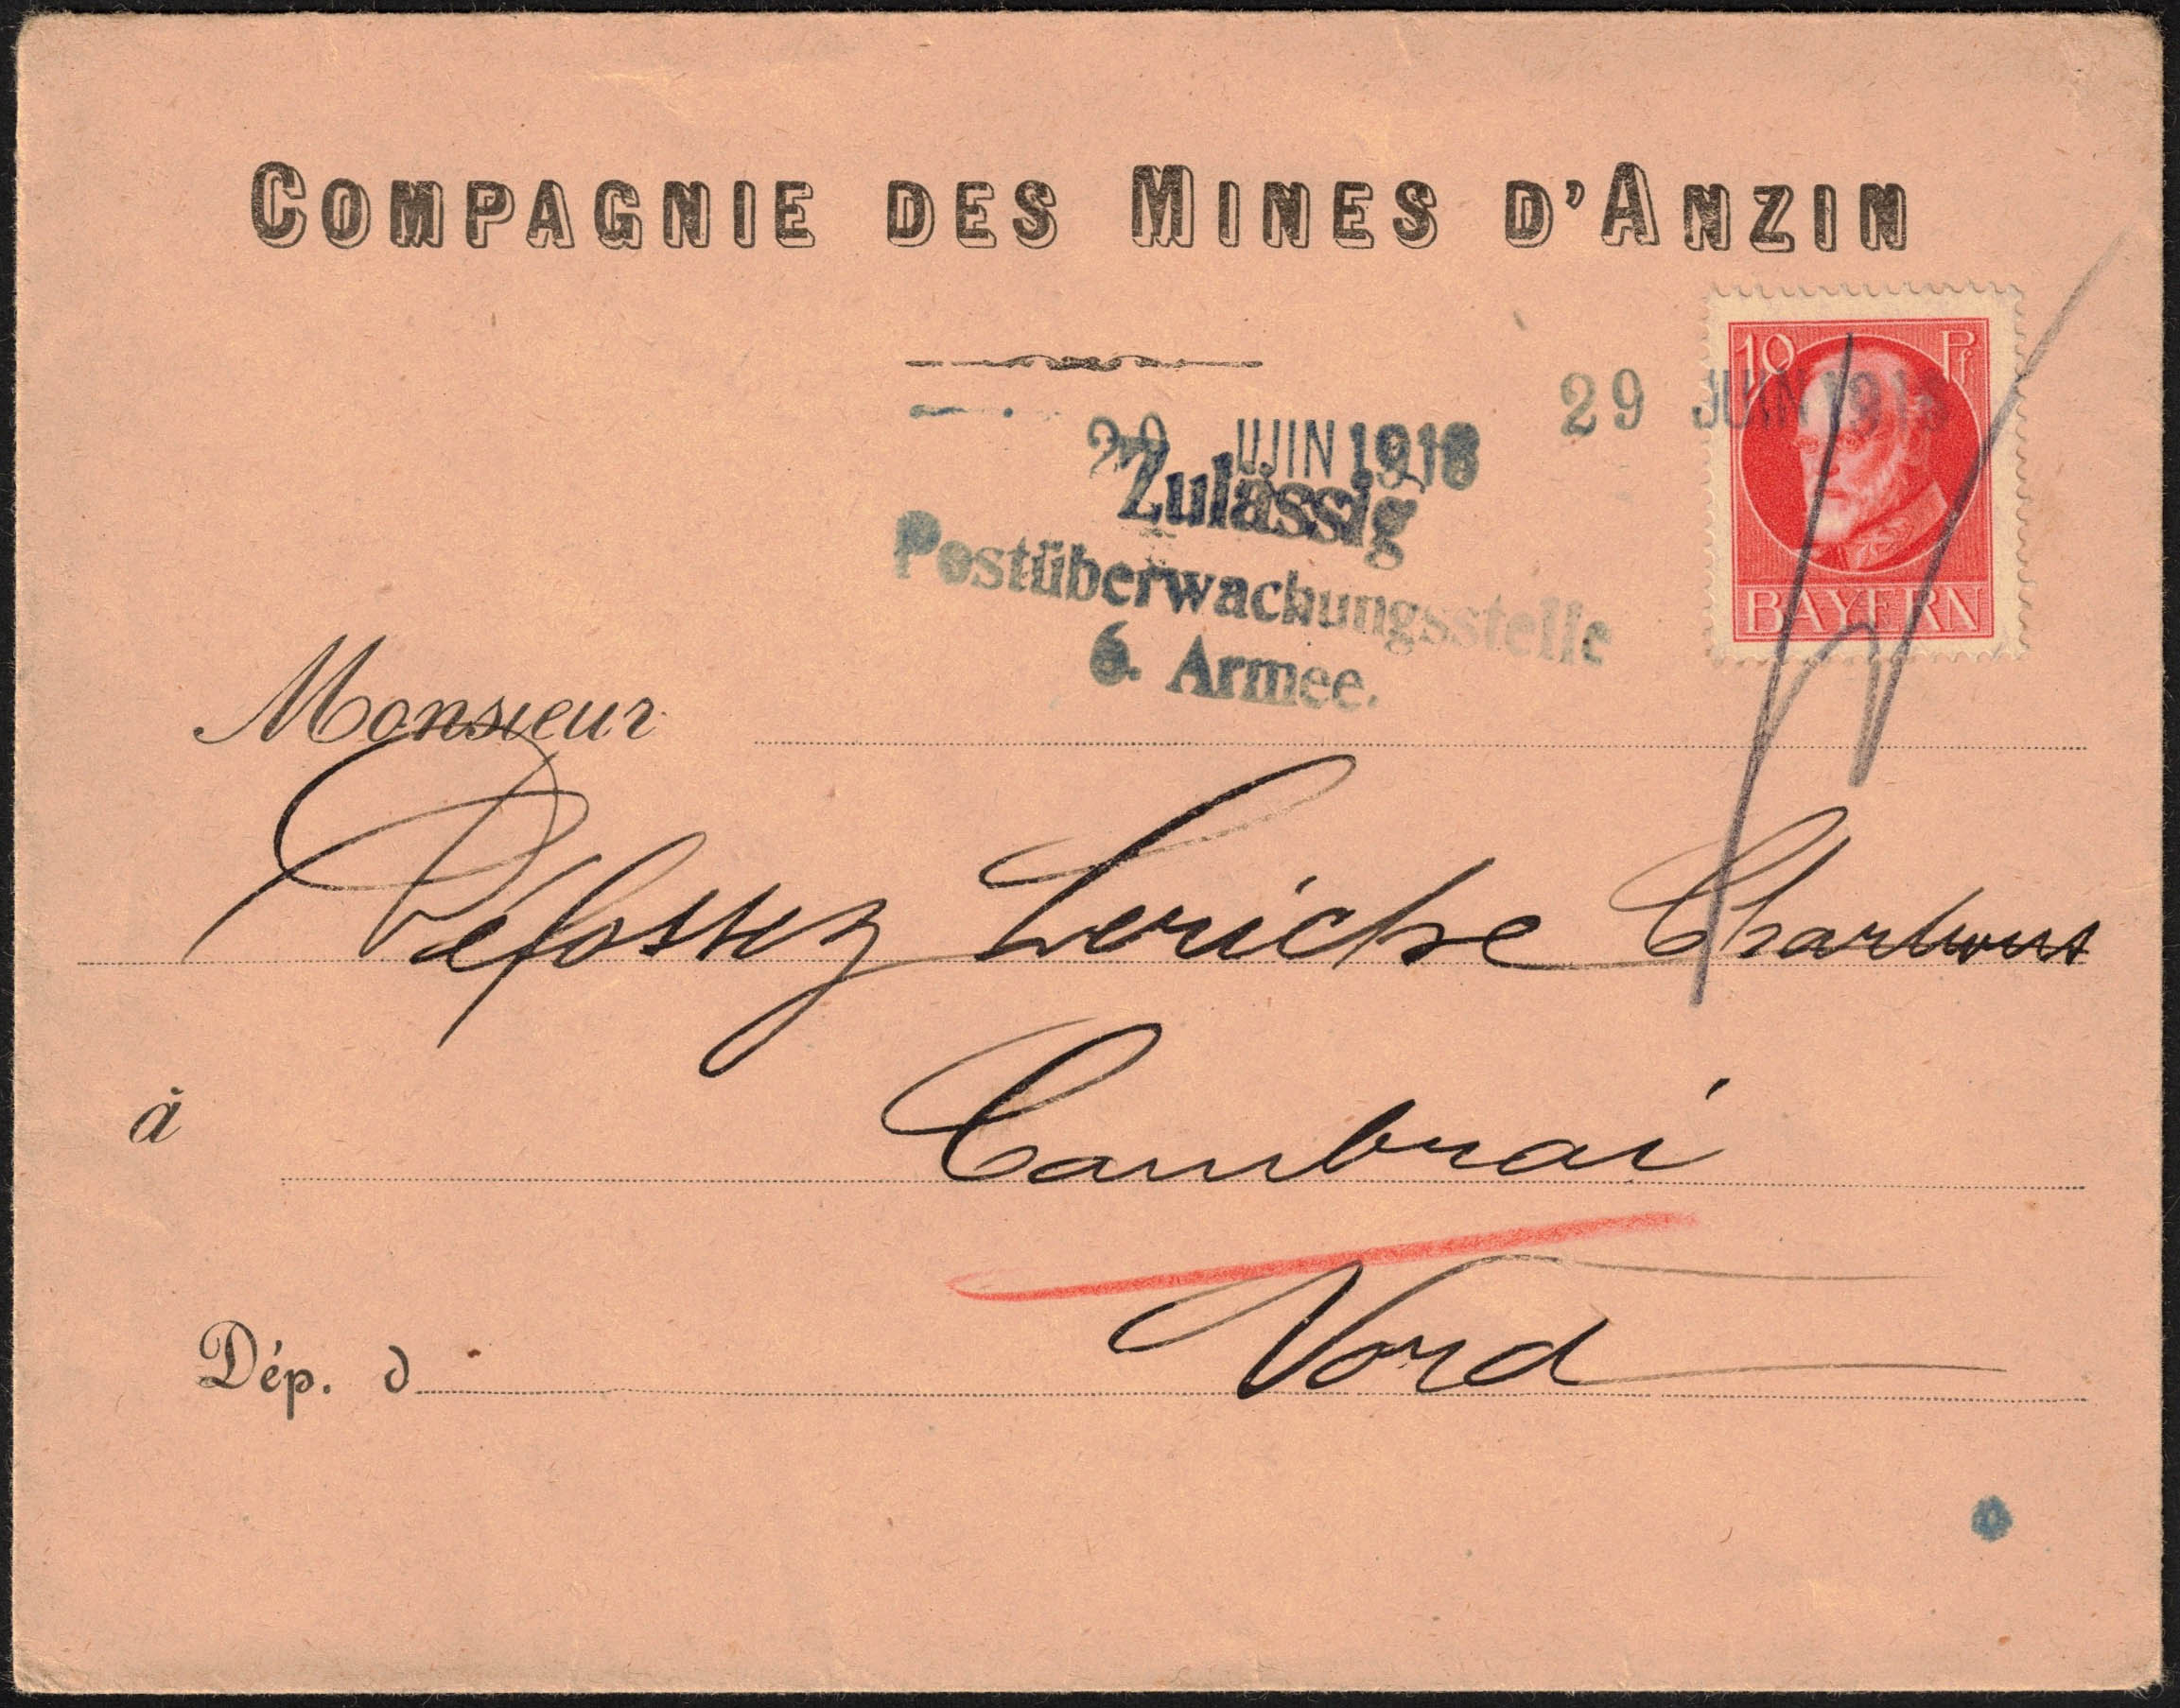 COMPAGNIE DES MINES D'ANZIN
29 JUIN 1918
10 Pf
BAYERN
29 JUIN 1918
Zulässig
Postüberwachungsstelle
6. Armee.
Monsieur
Défossez Leriche Charbons
à Cambrai
Dép. d Nord